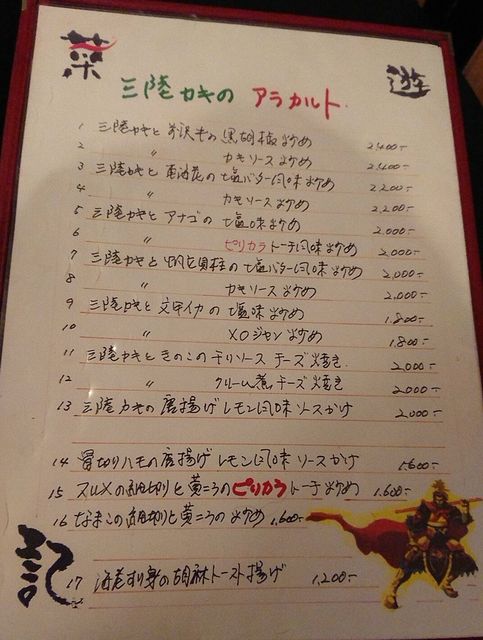 菜
遊
三陸カキの アラカルト.
1 三陸カキと 前沢牛の 黒胡椒炒め 2,400-
2 〃 カキソース炒め 2,400-
3 三陸カキと の塩バター風味炒め 2,200-
4 〃 カキソース炒め 2,200-
5 三陸カキと アナゴの 塩味炒め 2,000-
6 〃 ピリカラトーチ風味炒め 2,000-
7 三陸カキと 帆立貝柱の塩バター風味炒め 2,000-
8 〃 カキソース炒め 2,000-
9 三陸カキと 文甲イカの 塩味炒め 1,800-
10 〃 XOジャン炒め 1,800-
11 三陸カキと きのこのチリソース チーズ焼き 2,000-
12 〃 クリーム煮チーズ焼き 2,000-
13 三陸カキの 唐揚げレモン風味ソースかけ 2,000-
14 骨切りハモの唐揚げ レモン風味 ソースかけ 1,600-
15 スルメの細切りと黄ニラのピリカラトーチ炒め 1,600-
16 なまこの細切りと黄ニラの炒め 1,600-
17 海老すり身の胡麻トースト揚げ 1,200-
記